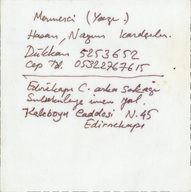 Mermerci (Yazı.)
Hasan, Nazım Kardeşler.
Dükkan 5253652
Cep Tel. 05322767615
Edirnekapı C. arka Sokağı
inen yol
Kaleboyu Caddesi N.45
Edirnekapı